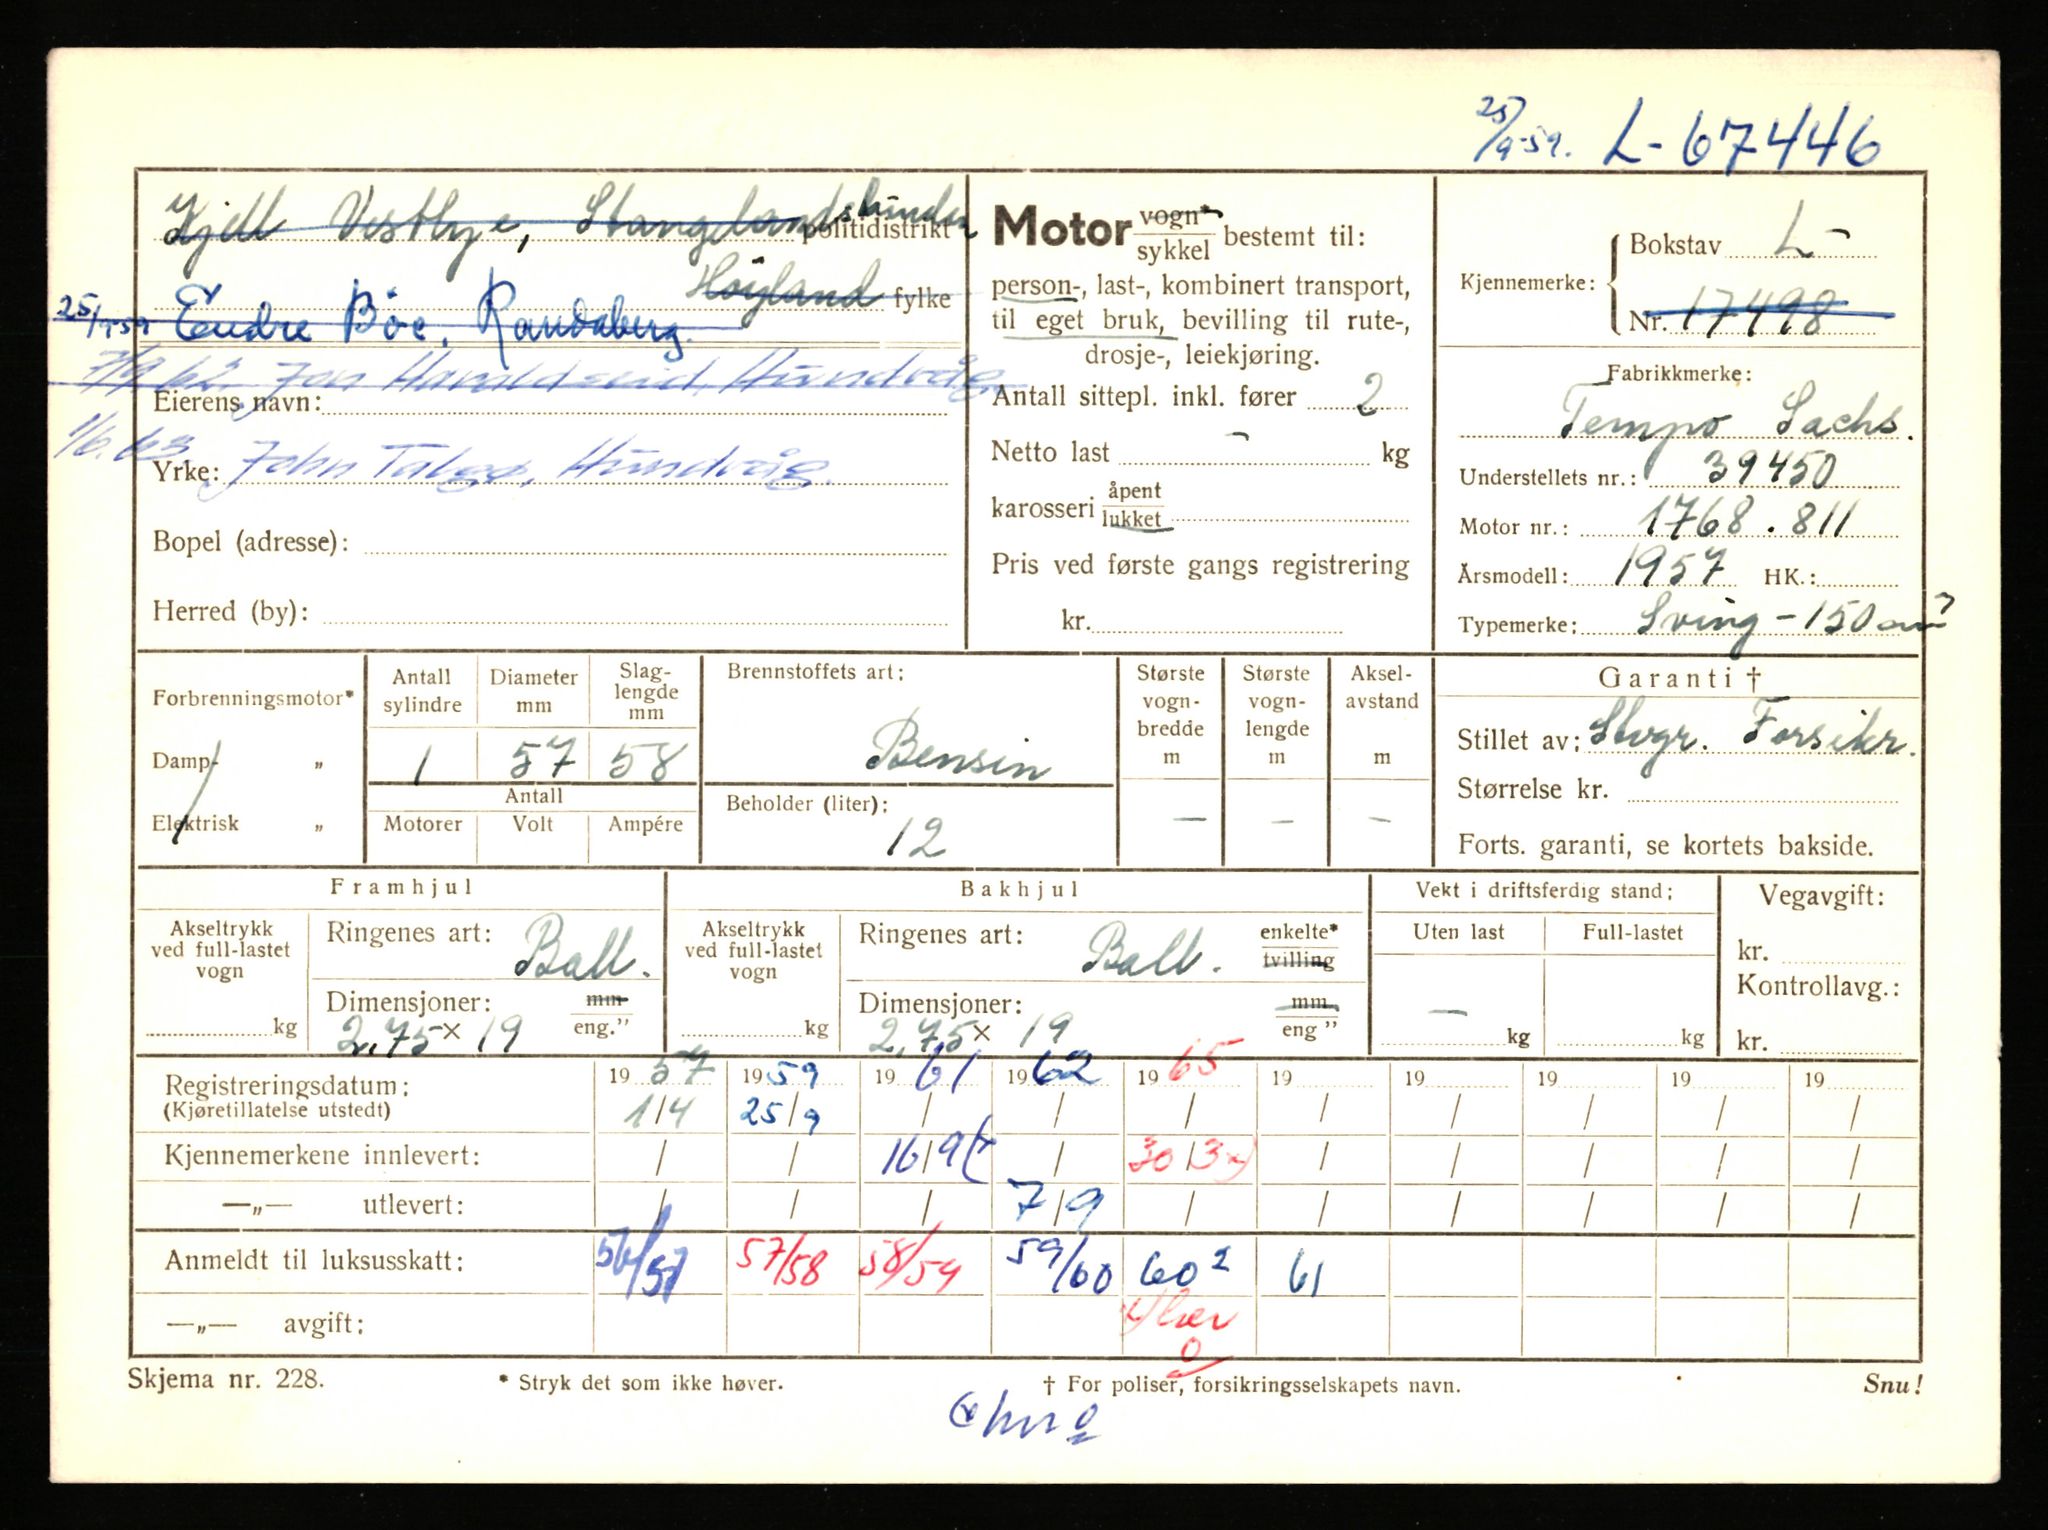 25/9-59. L-67446
Kjell Vestbye, Stanglandshinden politidistrikt
Höyland fylke
25/9 59 Endre Böe, Randaberg.
7/9 62. Jon Haraldseid, Hundvåg
Eierens navn:
1/6.63 John Talgø, Hundvåg.
Yrke:
Bopel (adresse):
Herred (by):
Motor vogn*/sykkel bestemt til:
person-, last-, kombinert transport,
til eget bruk, bevilling til rute-,
drosje-, leiekjøring.
Antall sittepl. inkl. fører 2
Netto last - kg
karosseri åpent/lukket
Pris ved første gangs registrering
kr.
Kjennemerke: Bokstav L-
Nr. 17498
Fabrikkmerke:
Tempo Sachs.
Understellets nr.: 39450
Motor nr.: 1768.811
Årsmodell: 1957 HK.:
Typemerke: Sving - 150 cm³
Forbrenningsmotor*
Damp- „
Elektrisk „
Antall sylindre 1
Diameter mm 57
Slag-lengde mm 58
Antall
Motorer Volt Ampére
Brennstoffets art:
Bensin
Beholder (liter):
12
Største vogn-bredde m -
Største vogn-lengde m -
Aksel-avstand m -
Garanti †
Stillet av: Stvgr. Forsikr.
Størrelse kr.
Forts. garanti, se kortets bakside.
Framhjul
Akseltrykk ved full-lastet vogn
kg
Ringenes art: Ball.
Dimensjoner: mm/eng."
2,75 x 19
Bakhjul
Akseltrykk ved full-lastet vogn
kg
Ringenes art: Ball. enkelte*/tvilling
Dimensjoner: mm/eng"
2,75 x 19
Vekt i driftsferdig stand:
Uten last Full-lastet
- kg kg
Vegavgift:
kr.
Kontrollavg.:
kr.
Registreringsdatum: 19 57 19 59 19 61 19 62 19 65 19 19 19 19 19
(Kjøretillatelse utstedt) 1/4 25/9 / / / / / / / /
Kjennemerkene innlevert: / / 16/9 (x / 30/3 x) / / / / /
—„— utlevert: / / / 7/9 / / / / / /
Anmeldt til luksusskatt: 56/57 57/58 58/59 59/60 60² 61
—„— avgift:
Skjema nr. 228. * Stryk det som ikke høver. † For poliser, forsikringsselskapets navn. Snu!